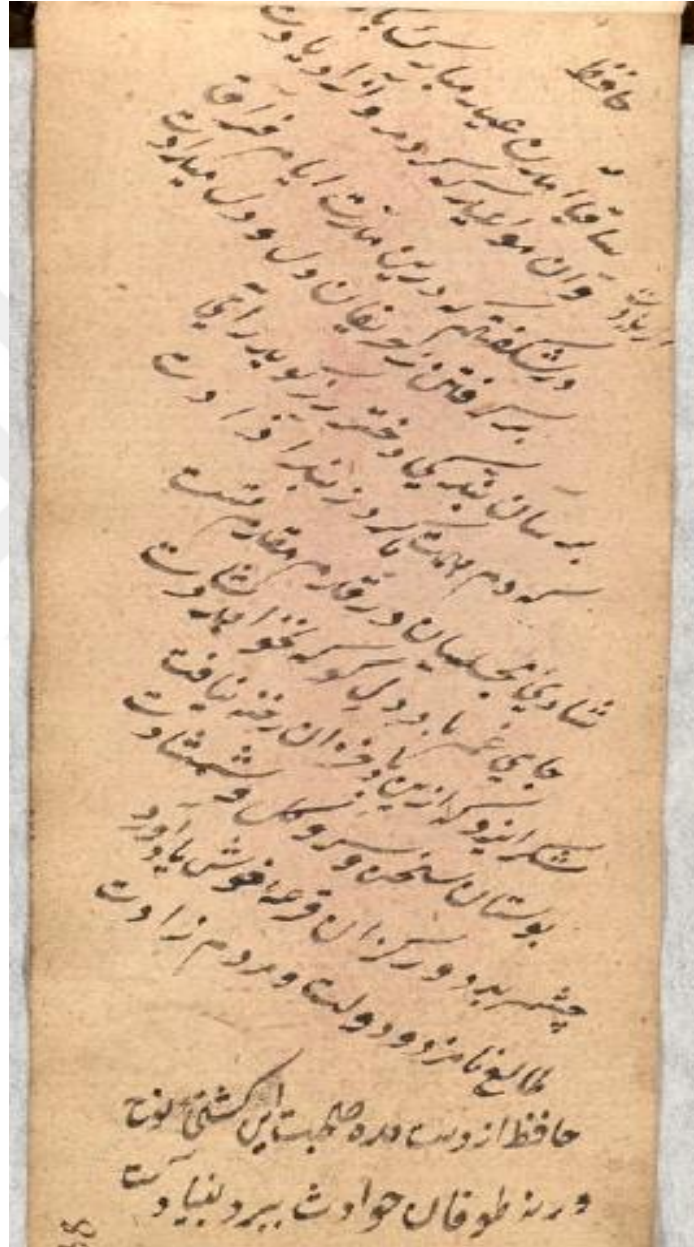 حافظ
ساقیا آمدن عید مبارک بادت
وان مواعید که کردی مرواد از یادت
از یادت
در شگفتم که درین مدت ایام فراق
برگرفتی ز حریفان دل و دل میدادت
برسان بندگی دختر رز گو بدر آی
که دم همت ما کرد ز بند آزادت
شادی مجلسیان در قدم مقدم تست
جای غم باد هر دل که نخواهد شادت
شکر ایزد که ازین باد خزان رخنه نیافت
بوستان سمن و سرو و گل و شمشادت
چشم بد دور کزان تفرقه خوش باز آورد
طالع نامور و دولت مادرزادت
حافظ از دست مده صحبت این کشتی نوح
ورنه طوفان حوادث ببرد بنیادت